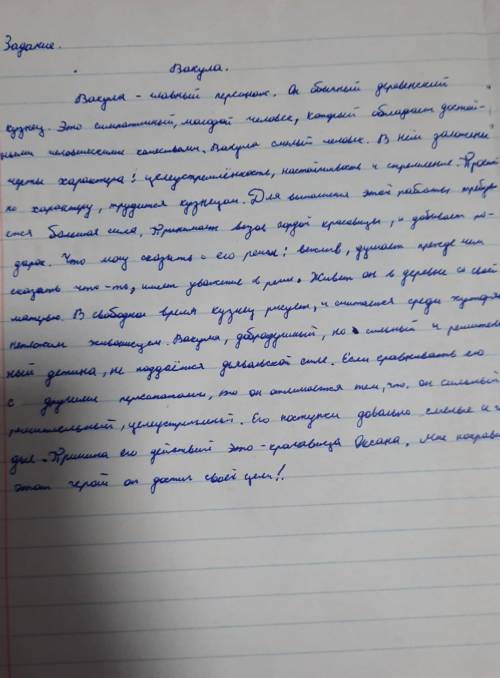 Задание.
Вакула.
Вакула - главный персонаж. Он обычный деревенский
кузнец. Это симпатичный, молодой человек, который обладает достой-
ными человеческими качествами. Вакула смелый человек. В нём заложены
черты характера: целеустремлённость, настойчивость и стремление. Простой
по характеру, трудится кузнецом. Для выполнения этой работы требуе
тся большая сила. Принимает вызов гордой красавицы, и добывает по-
дарок. Что могу сказать о его речи: вежлив, думает прежде чем
сказать что-то, имеет уважение в речи. Живёт он в деревне со свой
матерью. В свободное время кузнец рисует, и считается среди хуторян
неплохим живописцем. Вакула, добродушный, но сильный и решитель
ный детина, не поддаётся дьявольской силе. Если сравнивать его
с другими персонажами, то он отличается тем, что он сильный
решительный, целеустремлённый. Его поступки довольно смелые и
дые. Причина его действий это - красавица Оксана. Мне понрави
этот герой он достиг своей цели!.